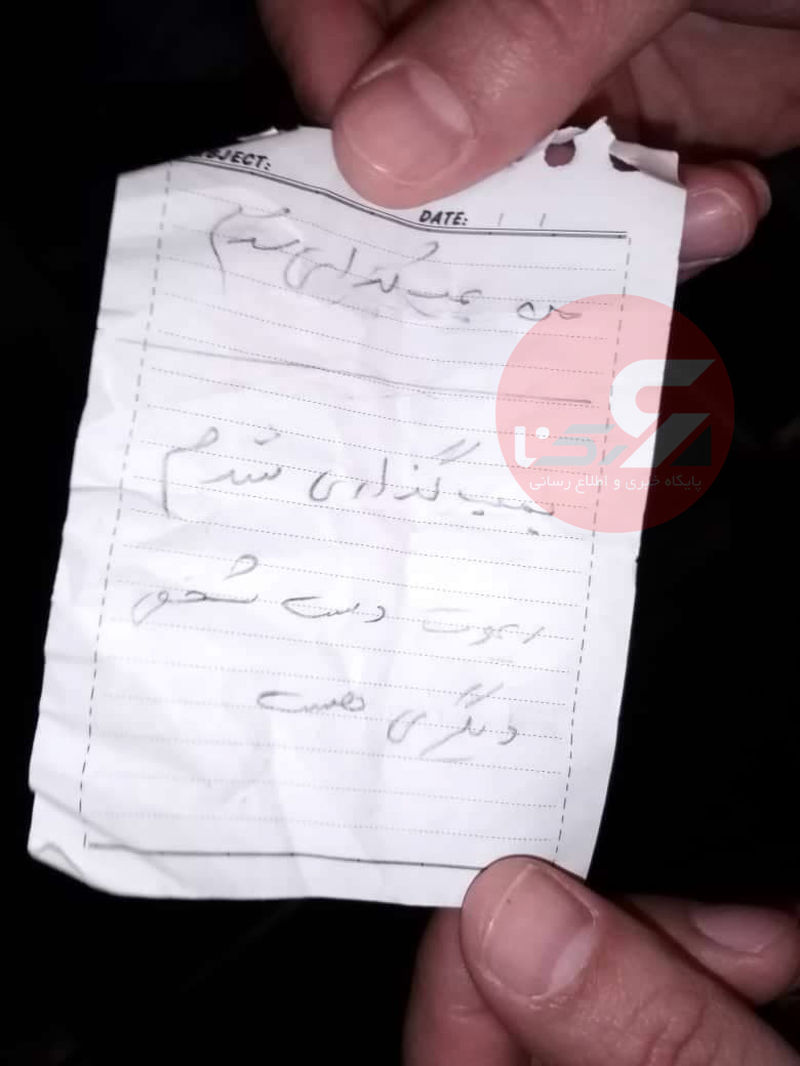 JECT:
DATE: / /
من بمب گذاری شدم
بمب گذاری شدم
ریموت دست شخص
دیگری هست
رکنا
پایگاه خبری و اطلاع رسانی